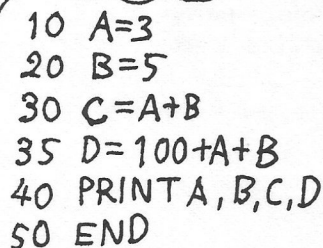 10 A=3
20 B=5
30 C=A+B
35 D=100+A+B
40 PRINT A, B, C, D
50 END